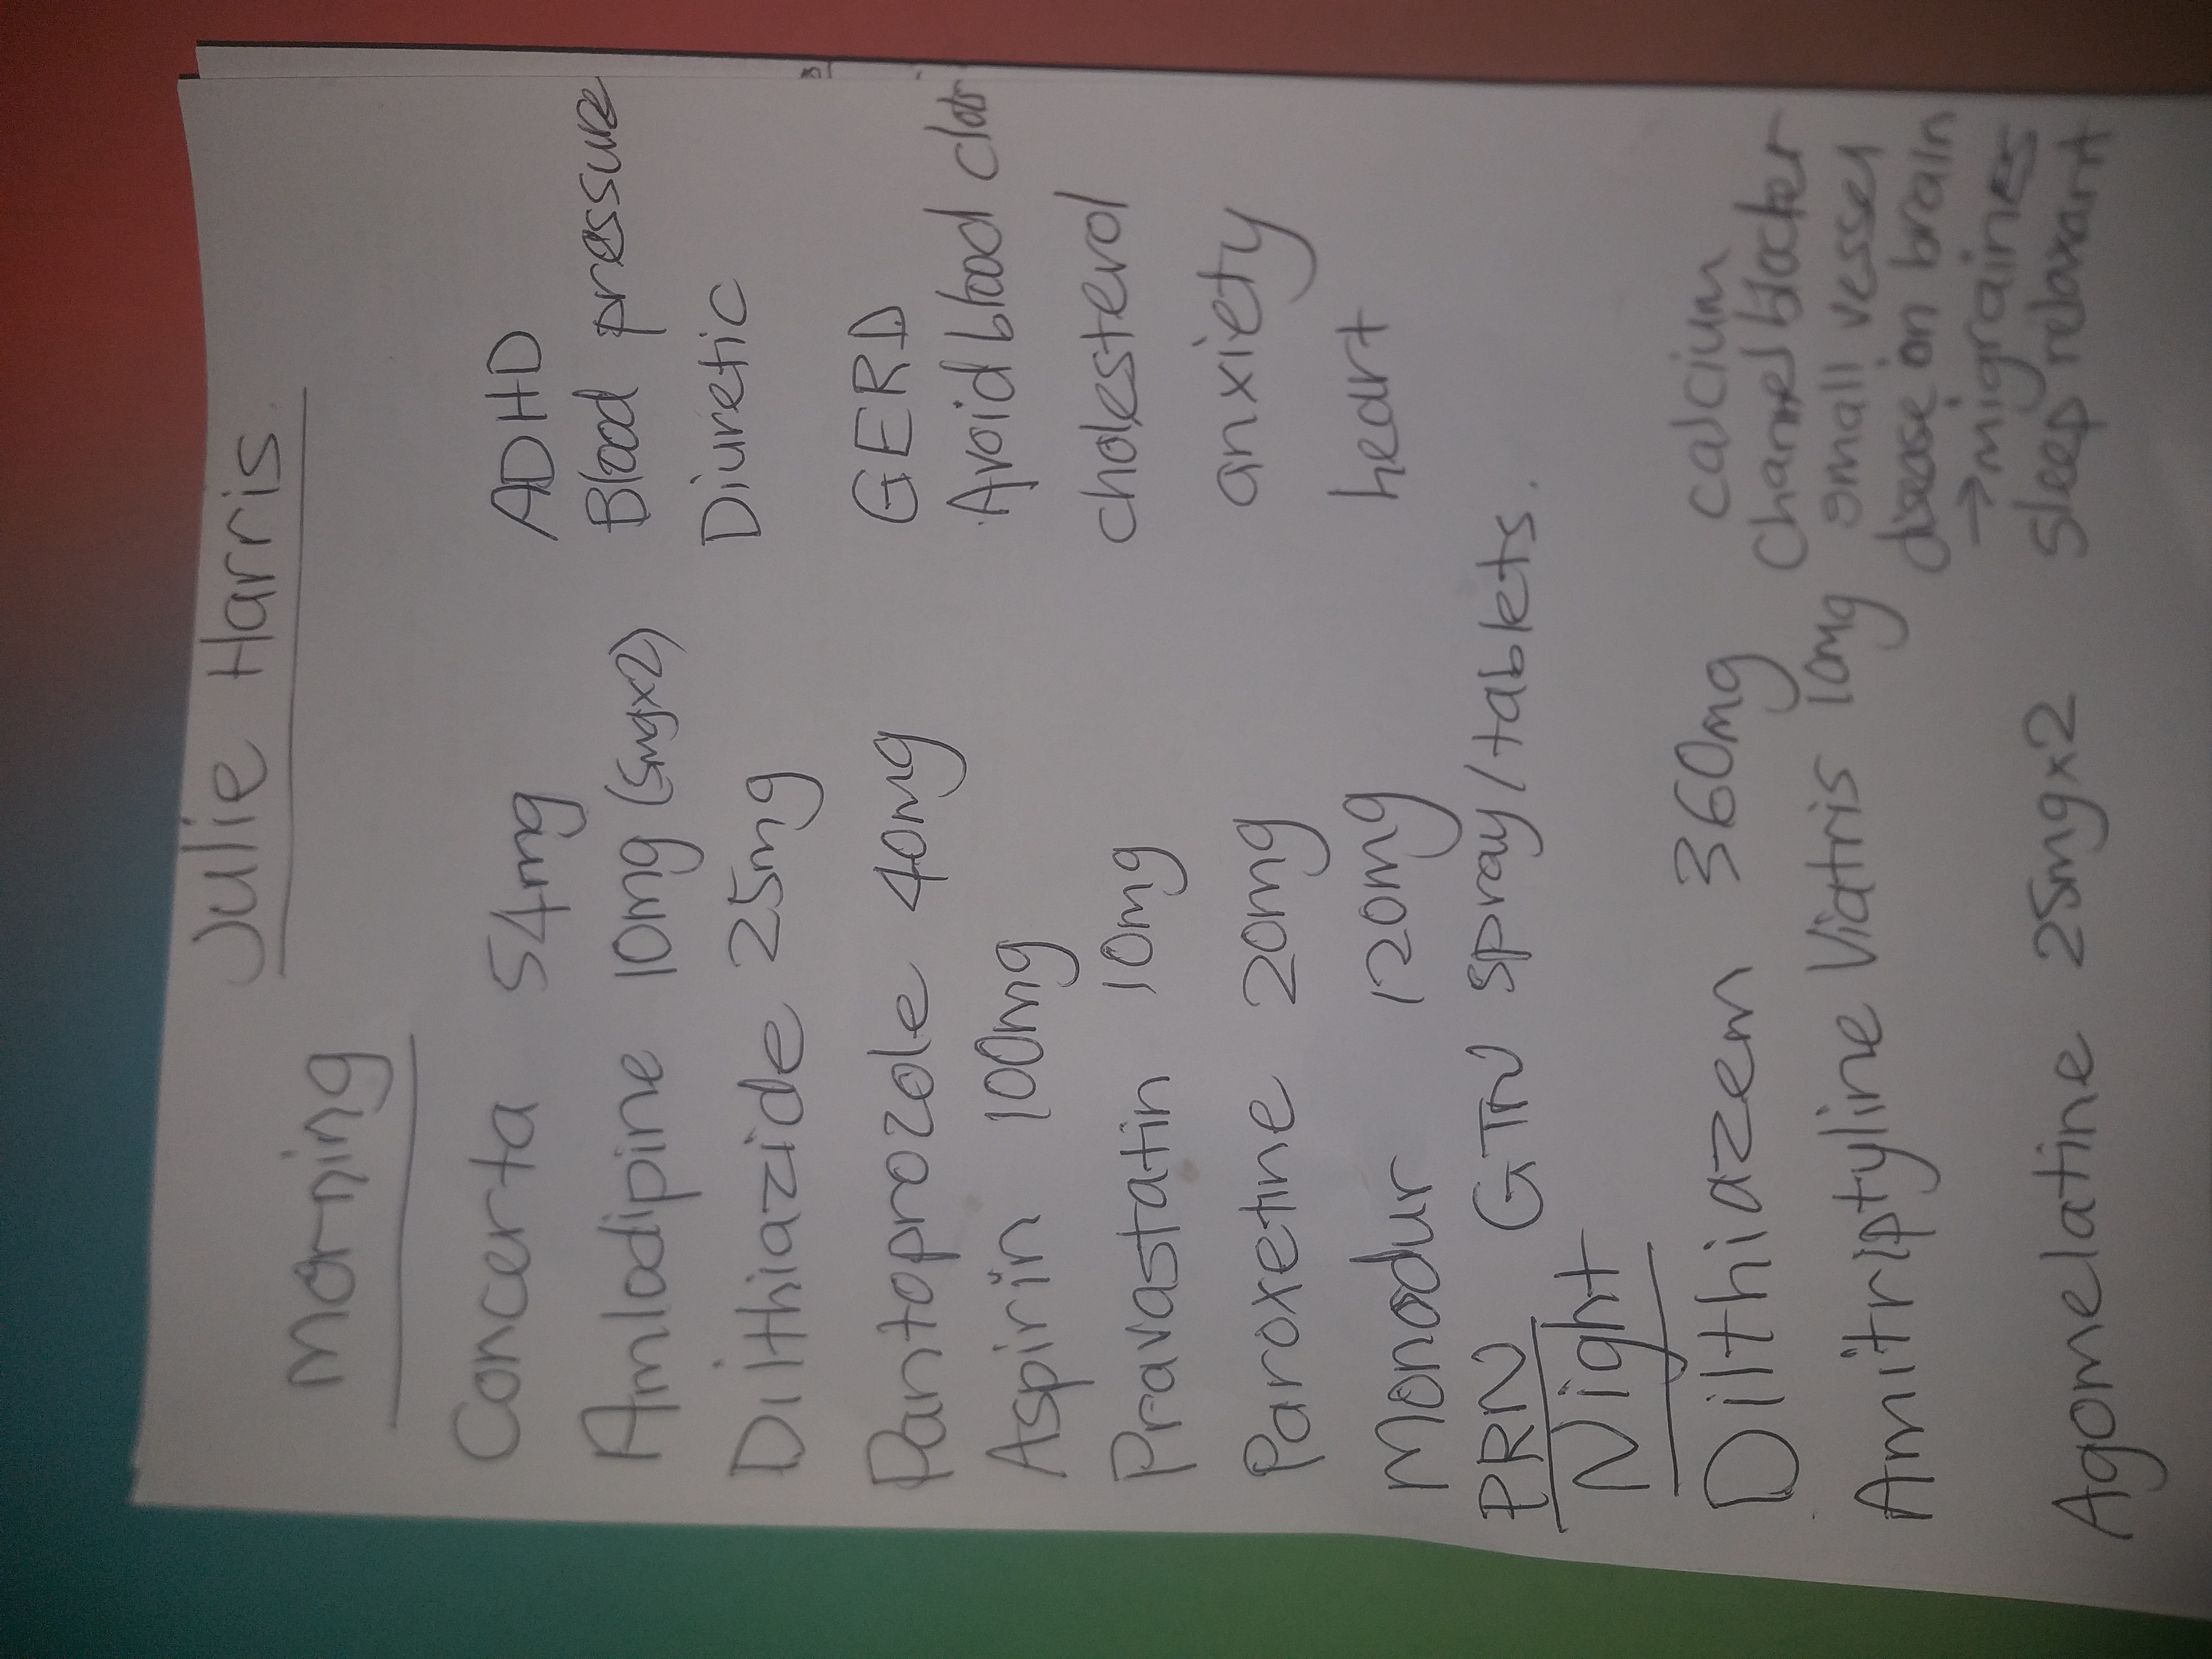 Julie Harris
morning
Concerta 54mg ADHD
Amlodipine 10mg (5mgx2) Blood pressure
Dilthiazide 25mg Diuretic
Pantoprozole 40mg GERD
Aspirin 100mg Avoid blood clots
Pravastatin 10mg cholesterol
Paroxetine 20mg anxiety
Monodur 120mg heart
PRN GTN spray/tablets.
Night
Dilthiazem 360mg calcium channel blocker
Amitriptyline Viatris 10mg small vessel
disease on brain
→migraines
Agomelatine 25mgx2 sleep relaxant